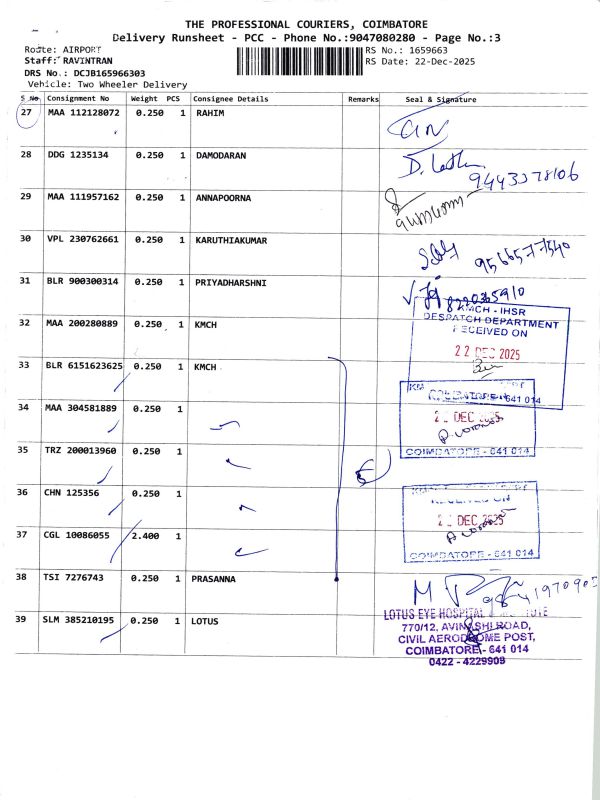 THE PROFESSIONAL COURIERS, COIMBATORE
Delivery Runsheet - PCC - Phone No.:9047080280 - Page No.:3
Route: AIRPORT
RS No.: 1659663
Staff: RAVINTRAN
RS Date: 22-Dec-2025
DRS No.: DCJB165966303
Vehicle: Two Wheeler Delivery
S No Consignment No Weight PCS Consignee Details Remarks Seal & Signature
27 MAA 112128072 0.250 1 RAHIM
28 DDG 1235134 0.250 1 DAMODARAN
29 MAA 111957162 0.250 1 ANNAPOORNA
30 VPL 230762661 0.250 1 KARUTHIAKUMAR
31 BLR 900300314 0.250 1 PRIYADHARSHNI
KMCH - IHSR
DESPATCH DEPARTMENT
RECEIVED ON
32 MAA 200280889 0.250 1 KMCH
22 DEC 2025
33 BLR 6151623625 0.250 1 KMCH
COIMBATORE - 641 014
34 MAA 304581889 0.250 1
DEC 2025
35 TRZ 200013960 0.250 1
COIMBATORE - 641 014
36 CHN 125356 0.250 1
RECEIVED ON
37 CGL 10086055 2.400 1
DEC 2025
COIMBATORE - 641 014
38 TSI 7276743 0.250 1 PRASANNA
39 SLM 385210195 0.250 1 LOTUS
LOTUS EYE HOSPITAL & INSTITUTE
770/12, AVINASHI ROAD,
CIVIL AERODROME POST,
COIMBATORE - 641 014
0422 - 4229909